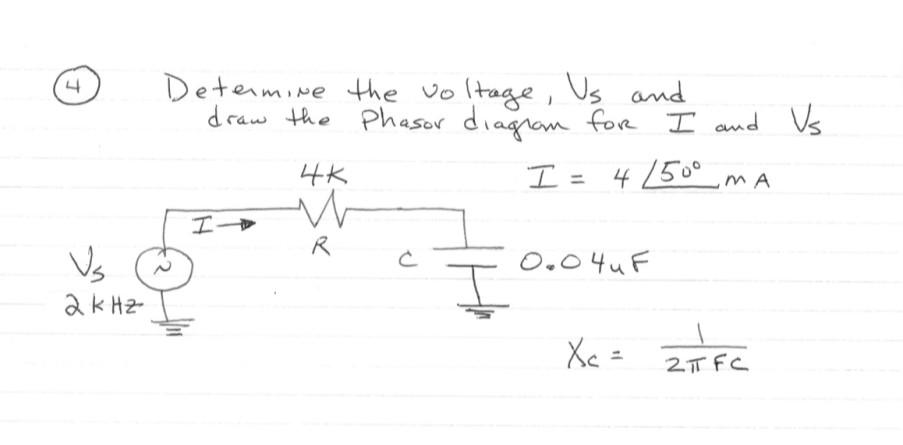 4 Determine the voltage, Vs and
draw the Phasor diagram for I and Vs
4K
I = 4 ∠50° mA
I →
R
Vs
~
C
0.04uF
2kHz
Xc = 1 / 2πFC